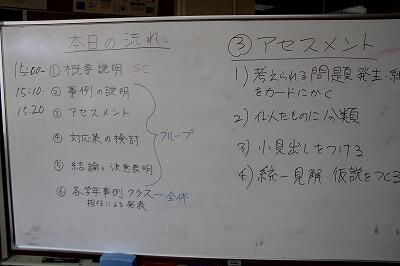 本日の流れ
15:00- ① 概要説明 SC
15:10- ② 事例の説明
15.20 ③ アセスメント
④ 対応策の検討
⑤ 結論と決意表明
グループ
⑥ 各学年事例クラス
担任による発表
全体
③ アセスメント
1) 考えられる問題発生・
をカードにかく
2) 似たものに分類
3) 小見出しをつける
4) 統一見解 仮説をつくる